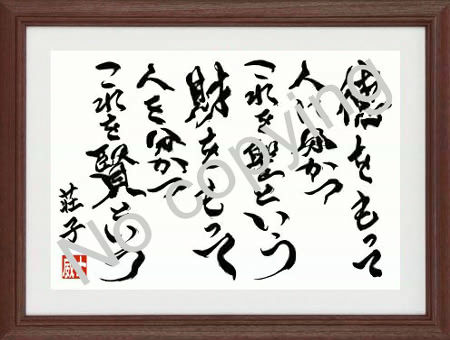 徳をもって
人に分かつ
これを聖という
財をもって
人を分かつ
これを賢という
荘子
No copying